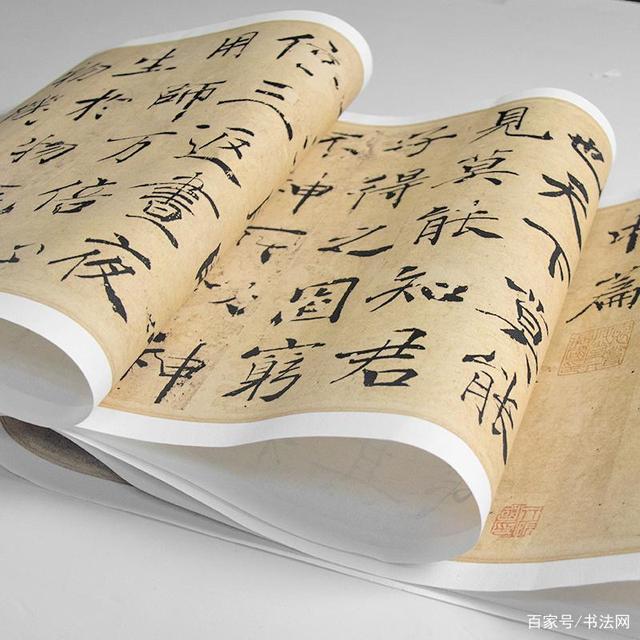 中篇
也天下莫能
見莫能知君
子得之固窮
不神所以神
倍三返晝夜
用師万倍心
生於物死
物機
百家号/书法网